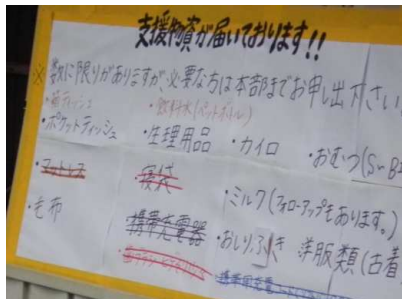 支援物資が届いております!!
※数に限りがありますが、必要な方は本部までお申し出下さい
・箱ティッシュ ・飲料水(ペットボトル)
・ポケットティッシュ ・生理用品 ・カイロ ・おむつ(S~B
・マットレス 寝袋 ・ミルク(フォローアップもあります。)
・毛布 携帯充電器 ・おしりふき 洋服類(古着